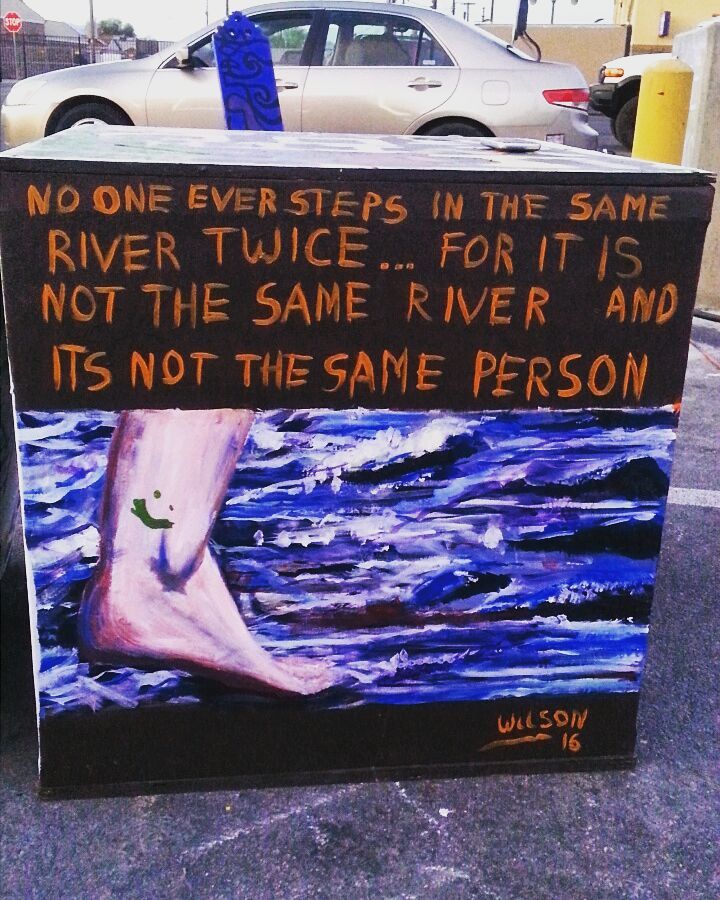 STOP
NO ONE EVER STEPS IN THE SAME
RIVER TWICE... FOR IT IS
NOT THE SAME RIVER AND
ITS NOT THE SAME PERSON
WILSON
16